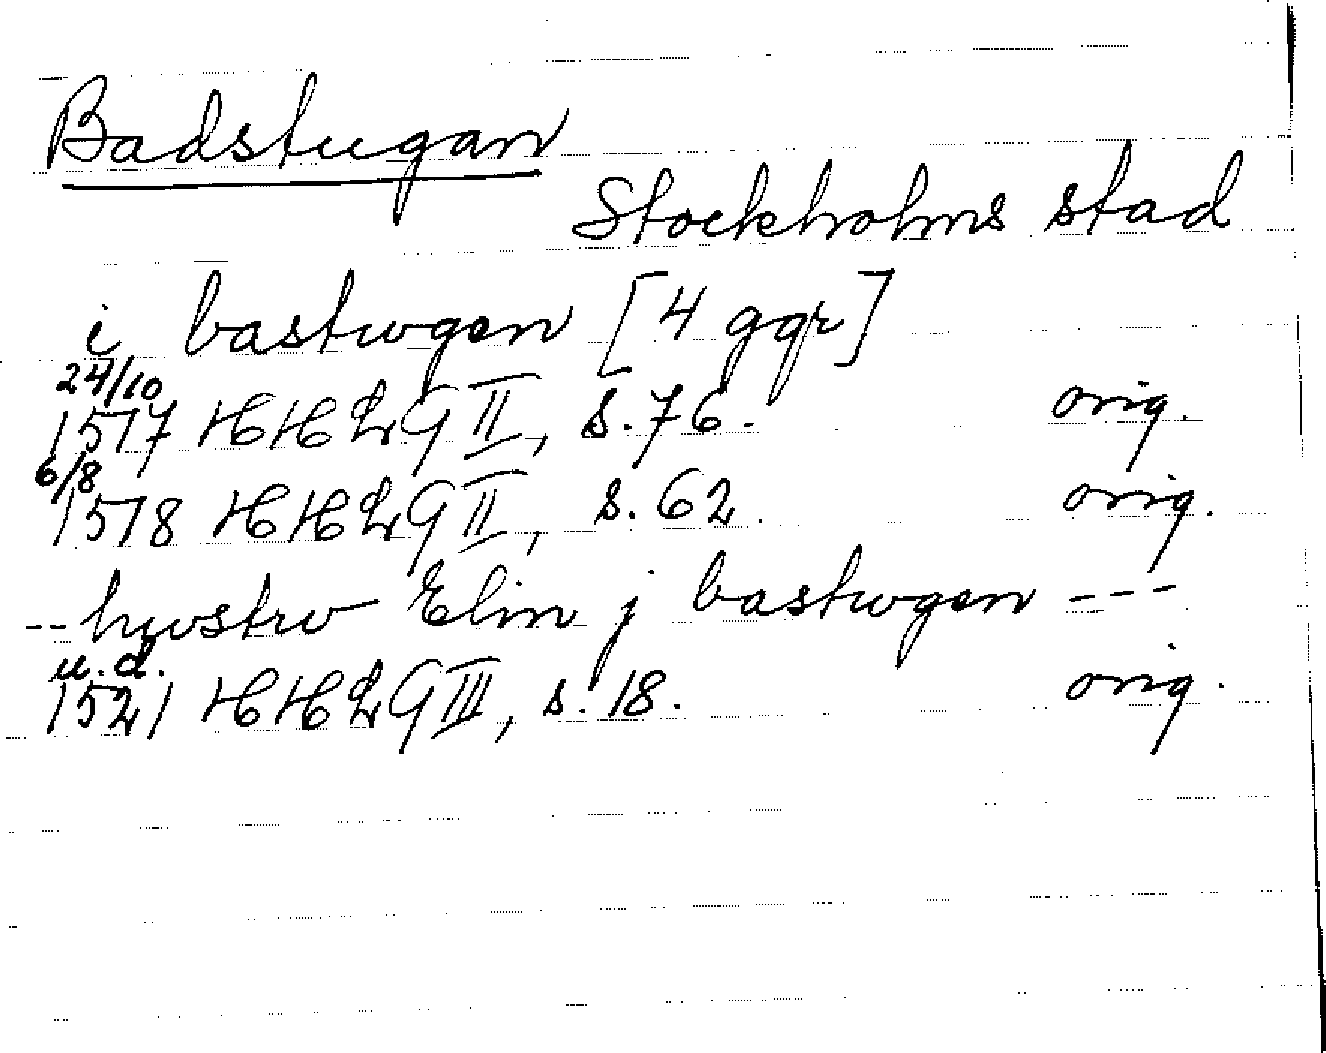 Badstugan
Stockholms stad
i bastwgen [4 ggr]
24/10
1517 HHLG II, s. 76. orig.
6/8
1518 HHLG II, s. 62. orig.
-- hwstrv Elin j bastwgen ---
u.d.
1521 HHLG III, s. 18. orig.